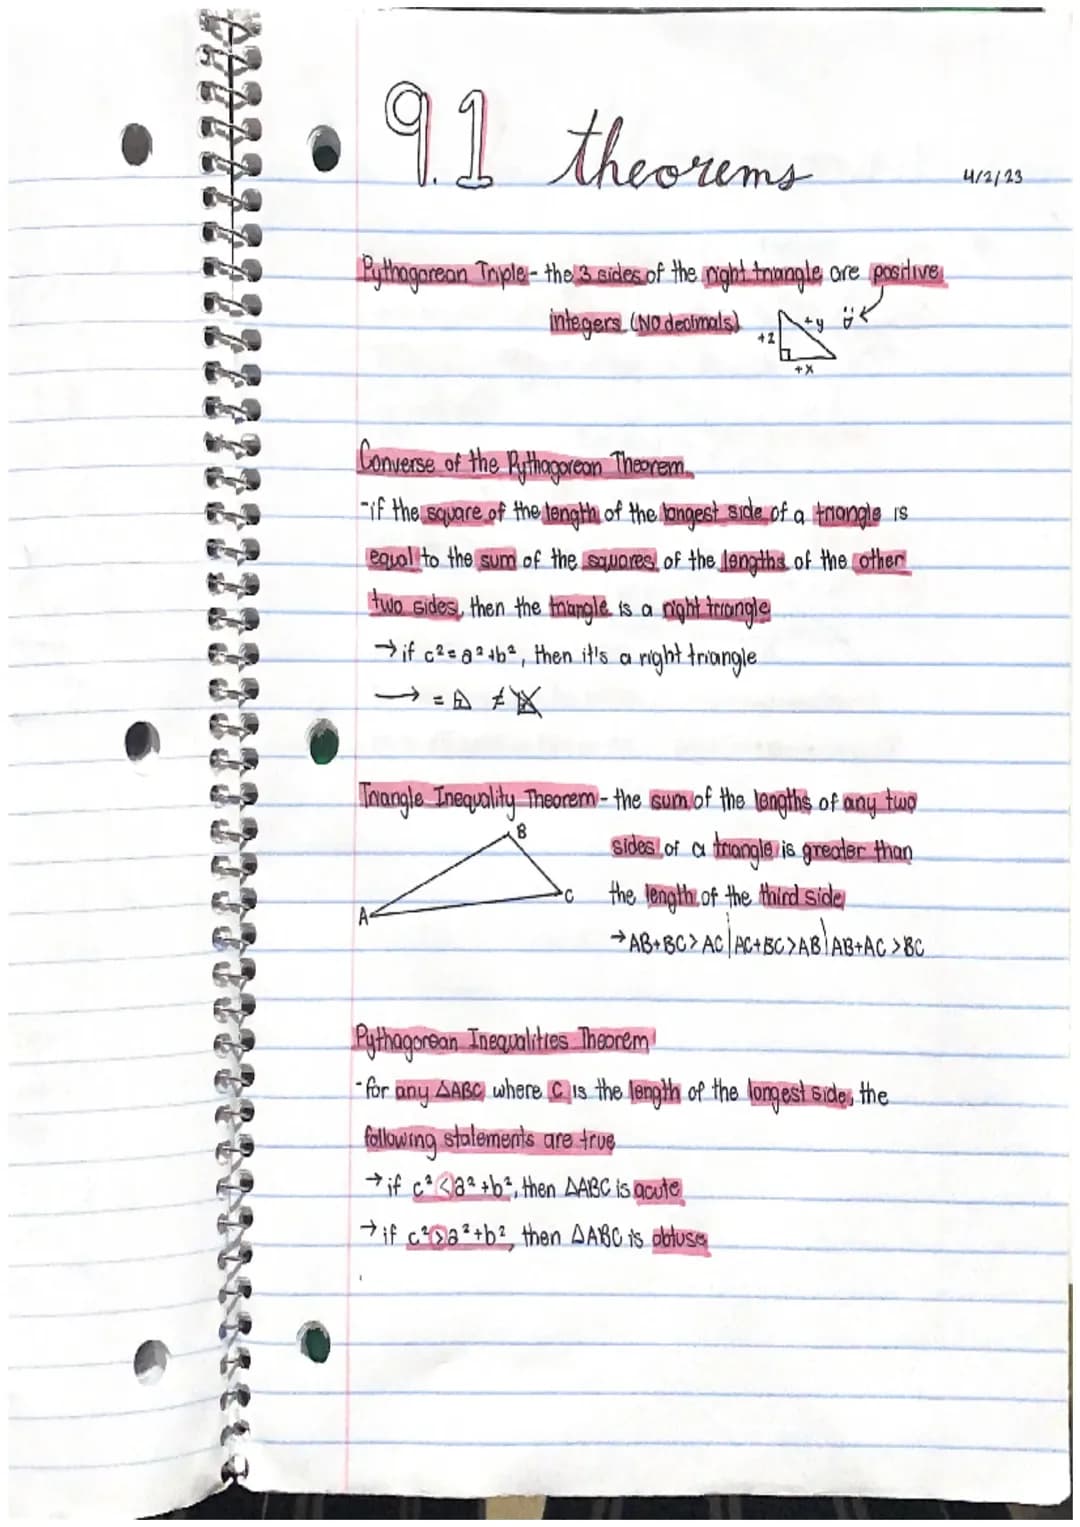 9.1 theorems
4/2/23
Pythagorean Triple - the 3 sides of the right triangle are positive
integers (NO decimals)
+z
+y
+x
Converse of the Pythagorean Theorem
-if the square of the length of the longest side of a triangle is
equal to the sum of the squares of the lengths of the other
two sides, then the triangle is a right triangle
→ if c² = a² + b², then it's a right triangle
→ = ◺ ≠
Triangle Inequality Theorem - the sum of the lengths of any two
sides of a triangle is greater than
the length of the third side
→ AB+BC > AC | AC+BC > AB | AB+AC > BC
B
C
A
Pythagorean Inequalities Theorem
-for any △ABC where C is the length of the longest side, the
following statements are true
→ if c² < a² + b², then △ABC is acute
→ if c² > a² + b², then △ABC is obtuse